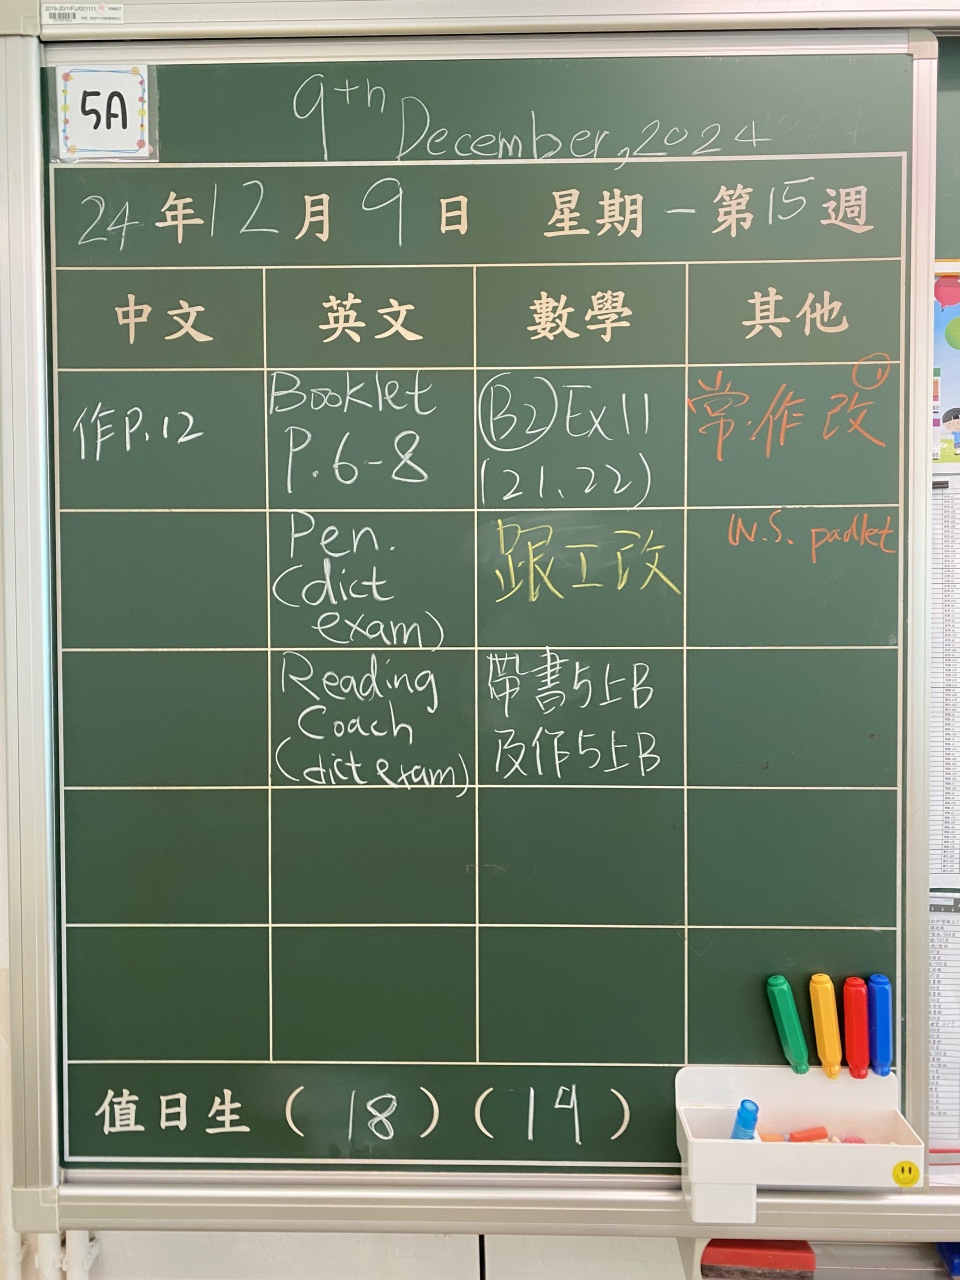 5A
9th December, 2024
24年12月9日 星期一 第15週
中文 英文 數學 其他
作P.12
Booklet
P.6-8
B2 Ex 11
(21、22)
常作改
Pen.
(dict
exam)
跟工改
N.S. padlet
Reading
Coach
(dict exam)
帶書5上B
及作5上B
值日生 (18) (19)